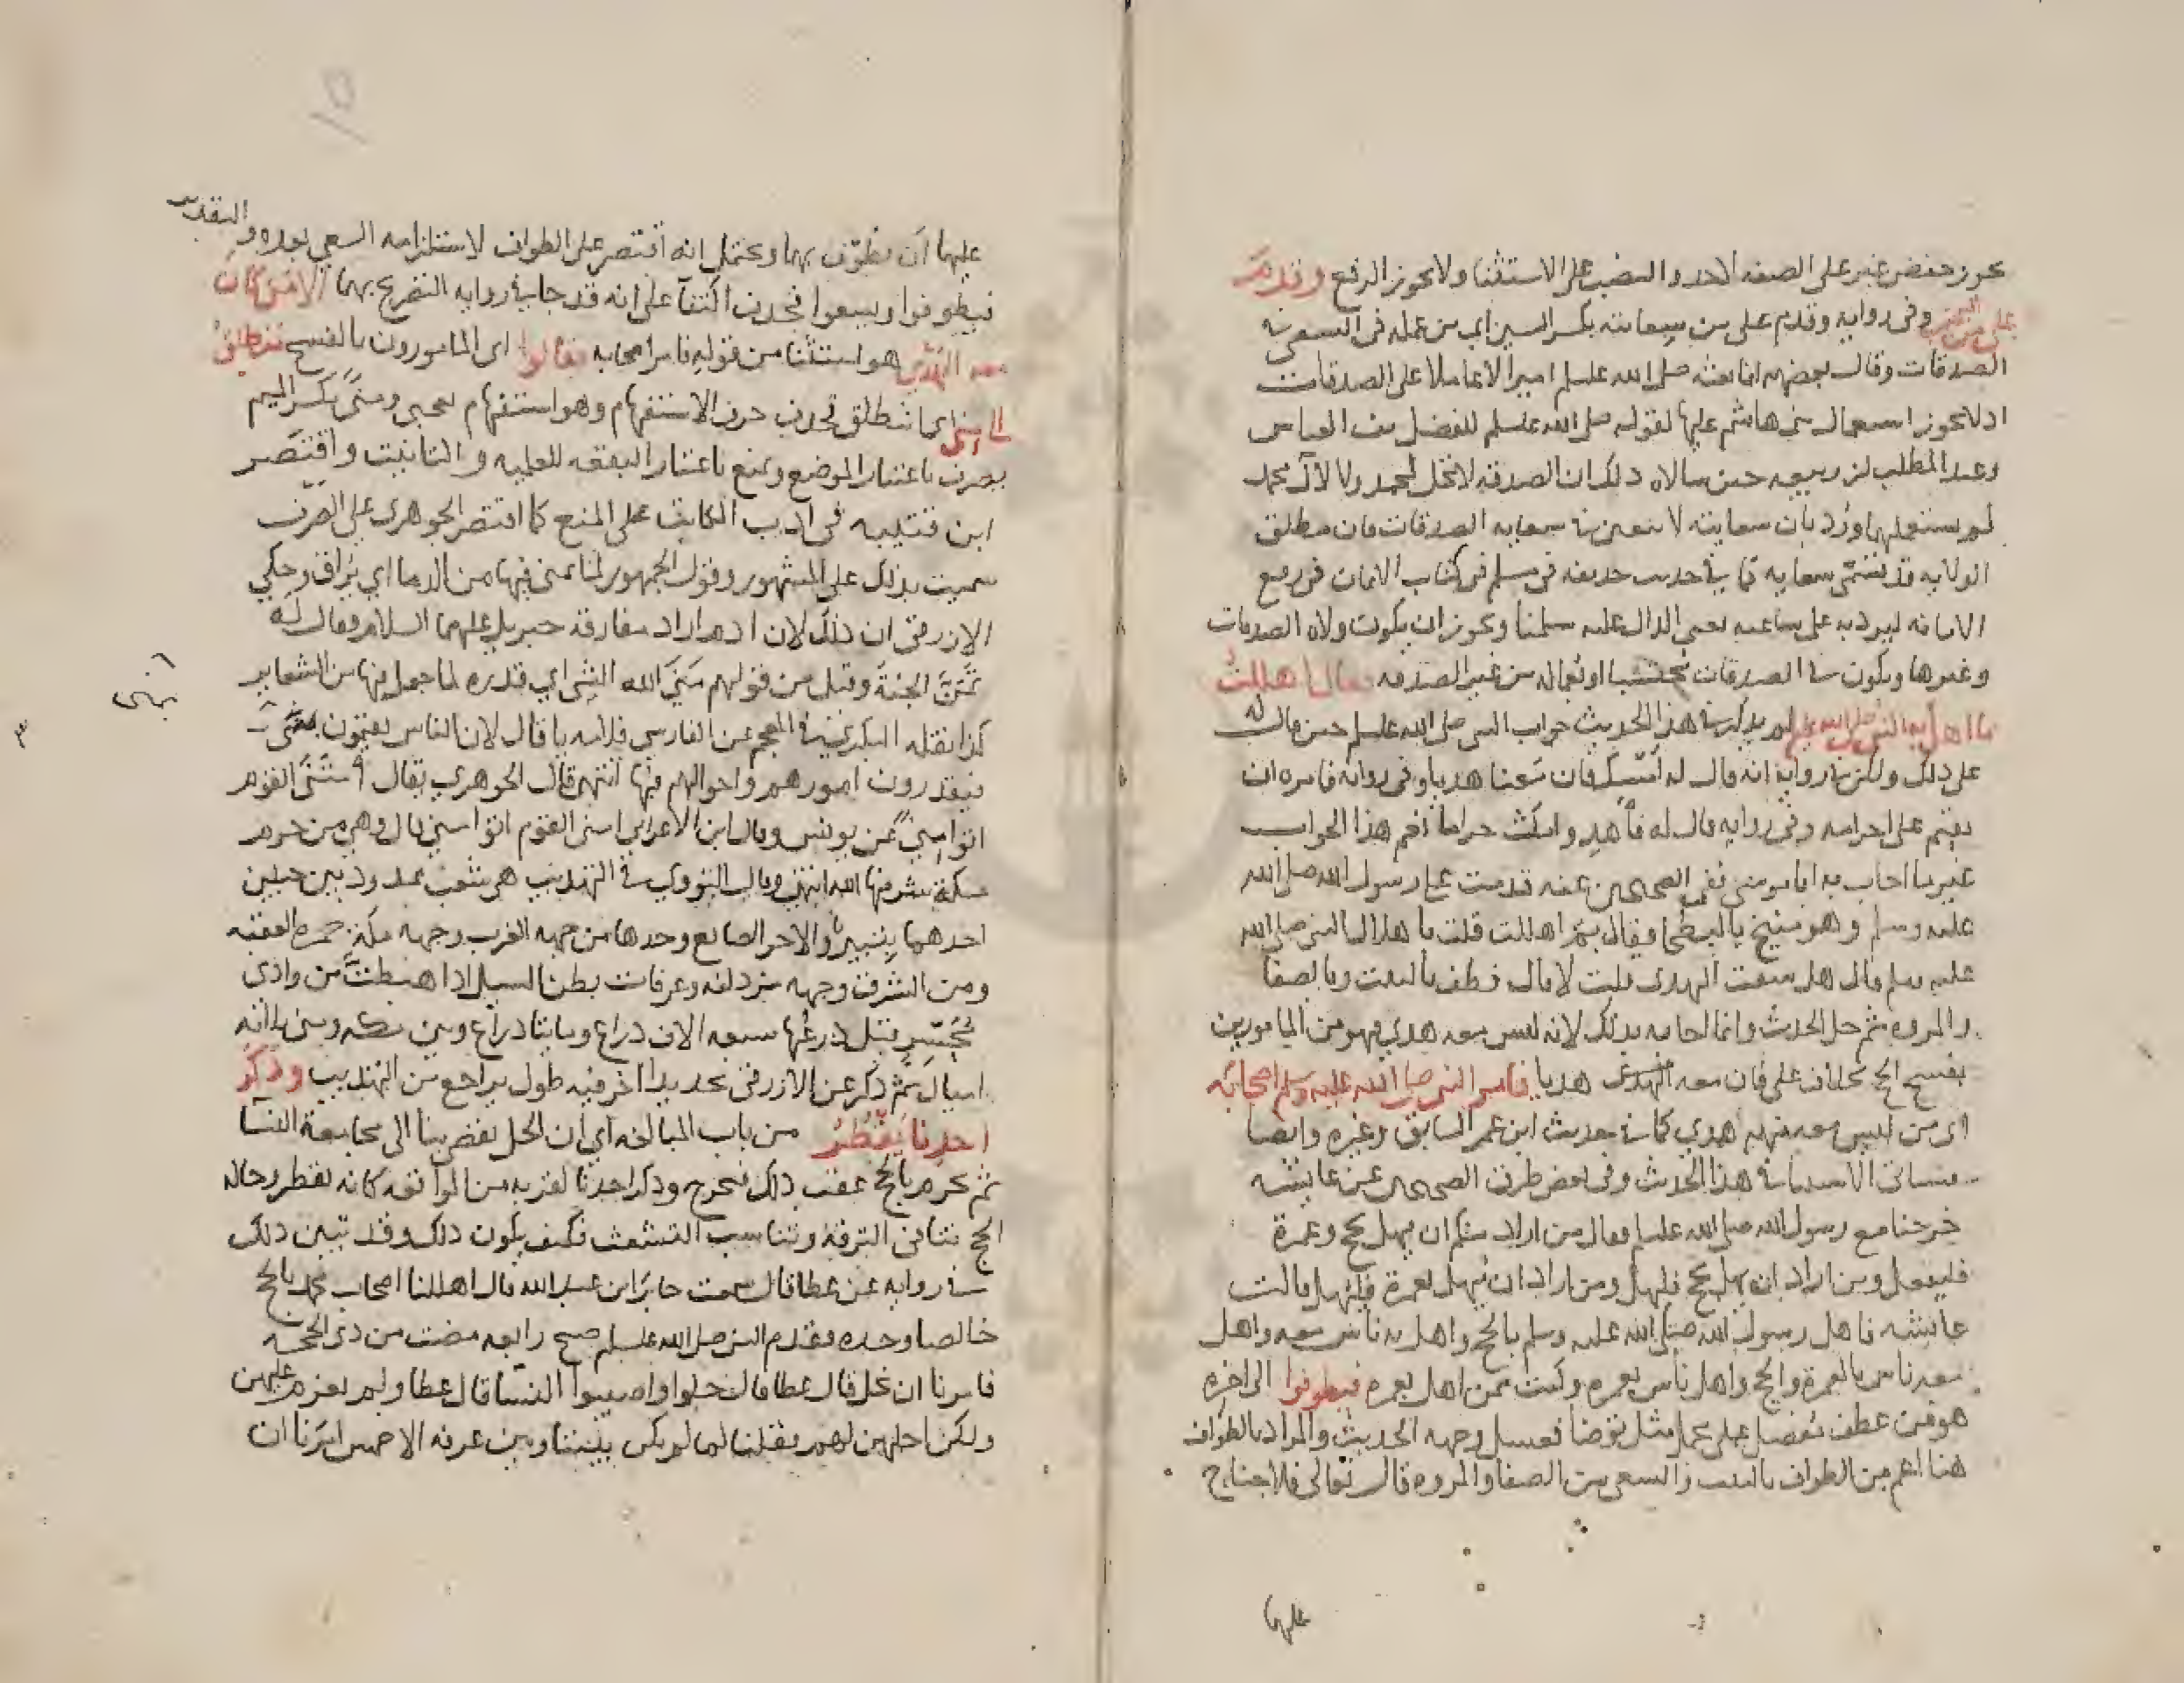 يجوز خفض غير على الصفه لاحد والنصب على الاستثنا ولا يجوز الرفع وقدم
على من اليمن وفى روايه وقدم على من سعايته بكسر السين اي من عمله فى السعى في
الصدقات وقال بعضهم انما بعثه صلى الله علسلم اميرا لا عاملا على الصدقات
اذ لا يجوز استعمال بنى هاشم عليها لقوله صلى الله علسلم للفضل بن العباس
وعبد المطلب بن ربيعه حين سالاه ذلك ان الصدقه لا تحل لمحمد ولا لآل محمد
لم يستعملهما ورد بان سعايته لا تتعين في سعايه الصدقات فان مطلق
الولايه قد تسمى سعايه كما في حديث حذيفه فى مسلم فى كتاب الايمان فى رفع
الامانه ليردنه على ساعيه يعنى الوالى عليه سلمنا ويجوز ان يكون ولاه الصدقات
وغيرها ويكون في الصدقات محتسبا او بعماله من غير الصدقه فقال اهللت
بما اهل به النبى صلى الله عليه لم يذكر في هذا الحديث جواب النبى صلى الله علسلم حين قال له
على ذلك ولكن في روايه انه قال له امسك فان معنا هديا وفى روايه فامره ان
يقيم على احرامه وفى روايه قال له فاهد وامكث حراما نعم هذا الجواب
غير ما اجاب به ابا موسى ففى الصحيحين عنه قدمت على رسول الله صلى الله
عليه وسلم وهو منيخ بالبطحا فقال بم اهللت قلت باهلال النبى صلى الله
عليه وسلم قال هل سقت الهدى قلت لا قال فطف بالبيت وبالصفا
والمروه ثم حل الحديث وانما اجابه بذلك لانه ليس معه هدي فهو من المامورين
بفسخ الحج بخلاف على فان معه الهدى هديا فامر النبى صلى الله عليه وسلم اصحابه
اى من ليس معه منهم هدي كما في حديث ابن عمر السابق وغيره وايضا
فسياتى الاستثنا في هذا الحديث وفى بعض طرق الصحيحين عن عايشه
خرجنا مع رسول الله صلى الله علسلم فقال من اراد منكم ان يهل بحج وعمرة
فليفعل ومن اراد ان يهل بحج فليهل ومن اراد ان يهل بعمرة فليهل قالت
عايشه فاهل رسول الله صلى الله عليه وسلم بالحج واهل به ناس معه واهل
معه ناس بالعمرة والحج واهل ناس بعمره وكنت فمن اهل بعمره فيطوفوا الى اخره
هو من عطف مفصل على مجمل مثل توضا فغسل وجهه الحديث والمراد بالطواف
هنا اعم من الطواف بالبيت والسعى بين الصفا والمروه قال تعالى فلا جناح
عليهما
عليهما ان يطوف بهما ويحتمل انه اقتصر على الطواف لاستلزامه السعي بعده والتقدير
فيطوفوا ويسعوا فحذف اكتفآ على انه قد جا في روايه التصريح بهما الا من كان
معه الهدى هو استثنا من قوله فامر اصحابه فقالوا اى المامورون بالفسخ ننطلق
الى منى اى اننطلق فحذف حرف الاستفهام وهو استفهام تعجبى ومنى بكسر الميم
يصرف باعتبار الموضع ويمنع باعتبار البقعه للعلميه والتانيث واقتصر
ابن قتيبه فى ادب الكاتب على المنع كما اقتصر الجوهرى على الصرف
سميت بذلك على المشهور وقول الجمهور لما يمنى فيها من الدما اي يراق وحكي
الازرقى ان ذلك لان ادم اراد مفارقه جبريل عليهما السلام فقال له
تمن الجنة وقيل من قولهم منى الله الشى اي قدره لما جعل فيها من الشعاير
كذا نقله البكرى في المعجم عن الفارسي قلت يا قال لان الناس يقيمون بمنى
فيقدرون امورهم واحوالهم فيها انتهى قال الجوهري يقال امتنى القوم
اتوا منىً عن يونس وقال ابن الاعرابى امنى القوم اتوا منى قال وهى من حرم
مكة شرفها الله انتهى وقال النووي في التهذيب هى شعب ممدود بين جبلين
احدهما ثبير والاخر الصابع وحدها من جهه الغرب وجهه مكة جمرة العقبه
ومن الشرق وجهه مزدلفه وعرفات بطن المسيل اذا هبطت من وادى
محسر قيل ذرعها سبعه الاف ذراع ومايتا ذراع وبين مكه ومنى ثلاثه
اميال ثم ذكر عن الازرقى تحديدا اخر فيه طول يراجع من التهذيب وذكر
احدنا يقطر من باب المبالغه اي ان الحل يفضى بنا الى مجامعة النسا
ثم نحرم بالحج عقب ذلك فنخرج وذكر احدنا لقربه من المواقعه كانه يقطر وحاله
الحج تنافى الترفه وتناسب التشعث فكيف يكون ذلك وقد تبين ذلك
في روايه عن عطا قال سمعت جابر ابن عبد الله قال اهللنا اصحاب محمد بالحج
خالصا وحده فقدم النبى صلى الله علسلم صبح رابعه مضت من ذى الحجه
فامرنا ان نحل قال عطا قال حلوا واصيبوا النسا قال عطا ولم يعزم عليهن
ولكن احلهن لهم فقلنا لما لم يكن بيننا وبين عرفه الا خمس امرنا ان